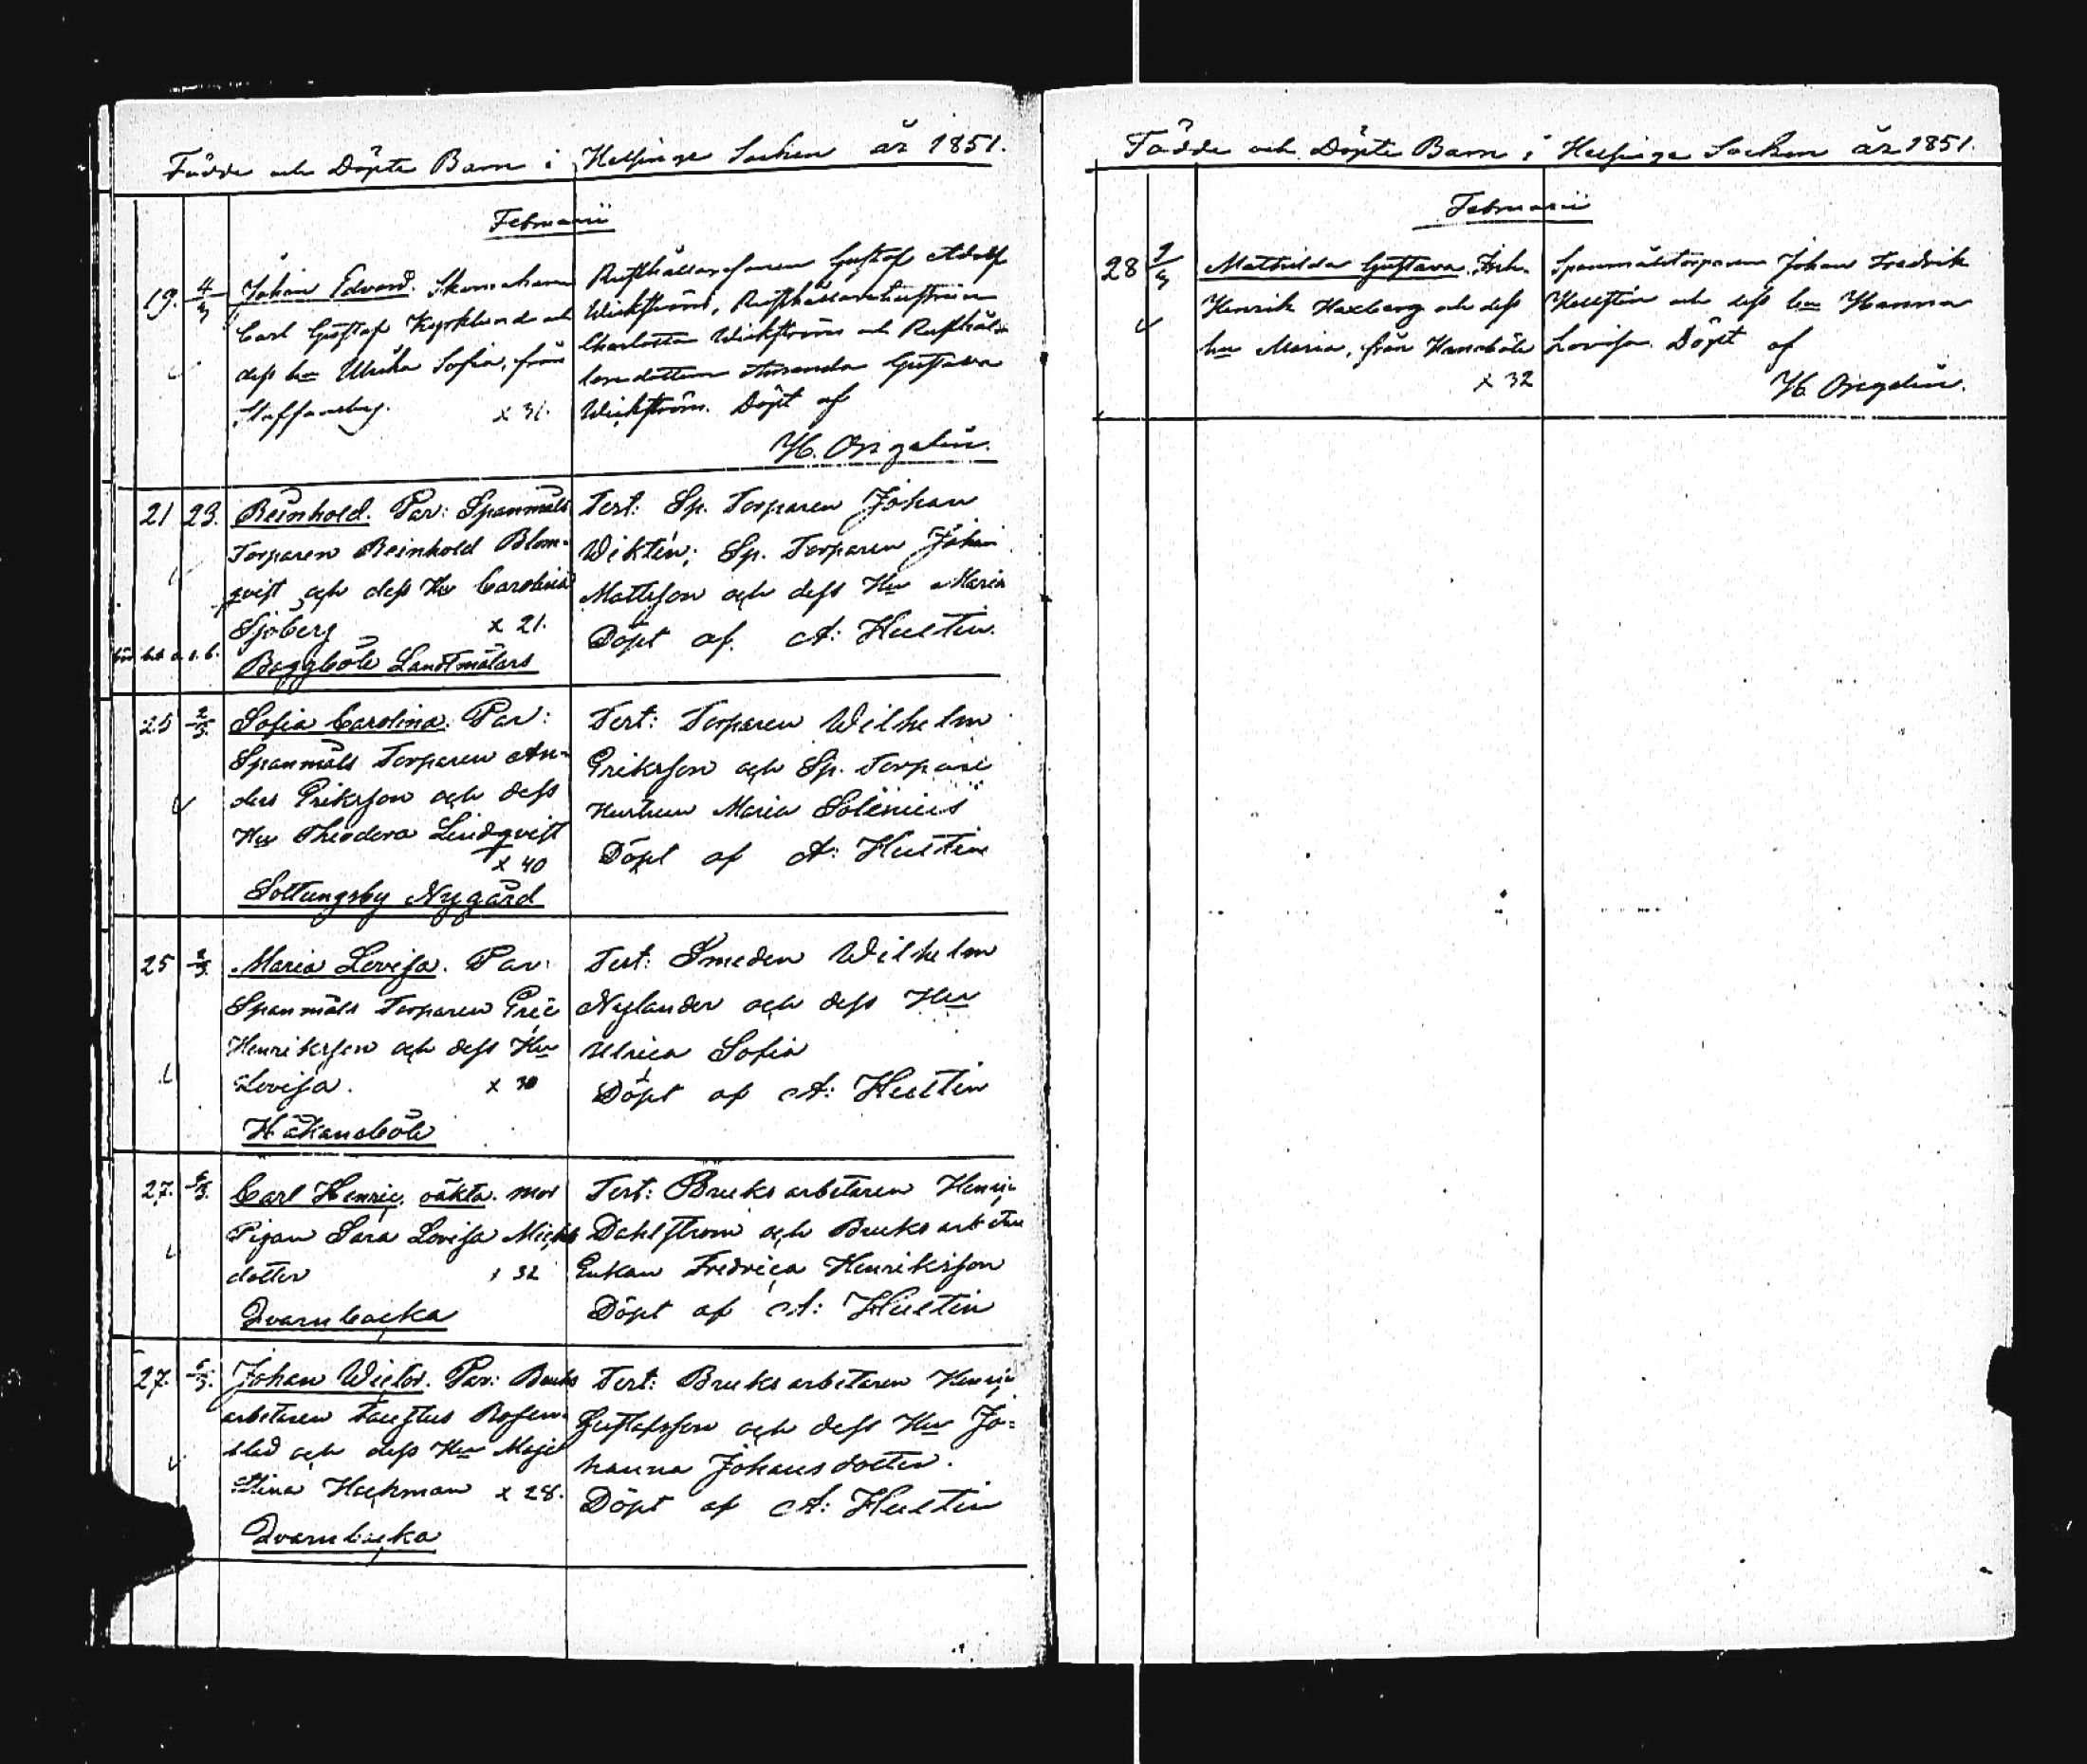 Födde och Döpte Barn i Helsinge Socken år 1851.
Februarii
19. 4/3 Johan Edvard. Skomakaren
Carl Gustaf Kyrklund och
dess hu Ulrika Sofia, från
Staffansby. x 31.
Rusthållaresonen Gustaf Adolf
Wickström, Rusthållarehustrun
Charlotta Wickström och Rusthål-
laredottren Amanda Gustava
Wickström. Döpt af
H. Orrgelin.
21 23. Reinhold. Par: Spanmåls
Torparen Reinhold Blom-
qvist och dess Hu Carolina
Sjöberg x 21.
Baggböle Landtmätars
Test: Sp. Torparen Johan
Wiktén; Sp. Torparen Johan
Mattsson och dess Hu Maria
Döpt af. A: Hustin.
25 2/3. Sofia Carolina. Par:
Spanmåls Torparen An-
ders Eriksson och dess
Hu Theodora Lindqvist
x 40
Sottungsby Nygård
Test: Torparen Wilhelm
Eriksson och Sp. Torpare
Hustrun Maria Solenius
Döpt af A: Hustin
25 2/3. Maria Lovisa. Par:
Spanmåls Torparen Eric
Henriksson och dess Hu
Lovisa. x 30
Håkansböle
Test: Smeden Wilhelm
Nylander och dess Hu
Ulrica Sofia
Döpt af A: Hustin
27. 5/3. Carl Henric, oäkta. mor
Pigan Sara Lovisa Michels
dotter x 32
Qvarnbacka
Test: Bruksarbetaren Henric
Dahlström och Bruksarbetare
Enkan Fredrica Henriksson
Döpt af A: Hustin
27. 5/3. Johan Victor. Par: Bruks
arbetaren Faustus Rosen-
blad och dess Hu Maja
Stina Hackman x 28.
Qvarnbacka
Test: Bruksarbetaren Henric
Gustafsson och dess Hu Jo=
hanna Johansdotter.
Döpt af A: Hustin
Födde och Döpte Barn i Helsinge Socken år 1851.
Februarii
28 9/3 Mathilda Gustava.
Henrik Haxberg och dess
hu Maria, från Hansböle
x 32
Spanmålstorparen Johan Fredrik
Hellstén och dess hu Hanna
Lovisa. Döpt af
H. Orrgelin.